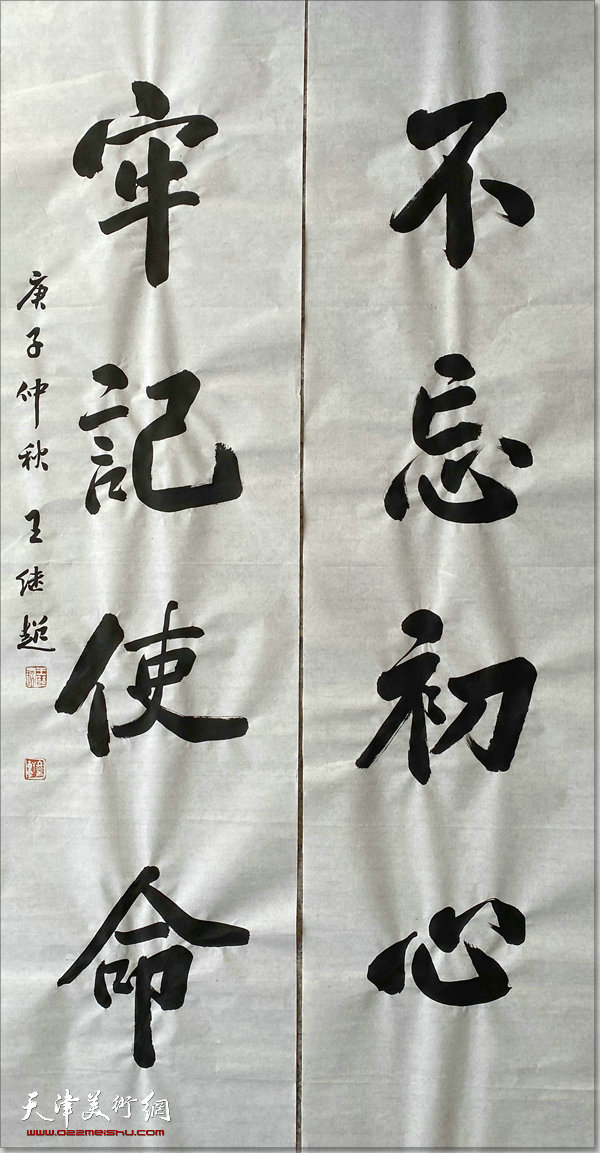 不忘初心
牢記使命
庚子仲秋王继超
天津美術網
www.022meishu.com